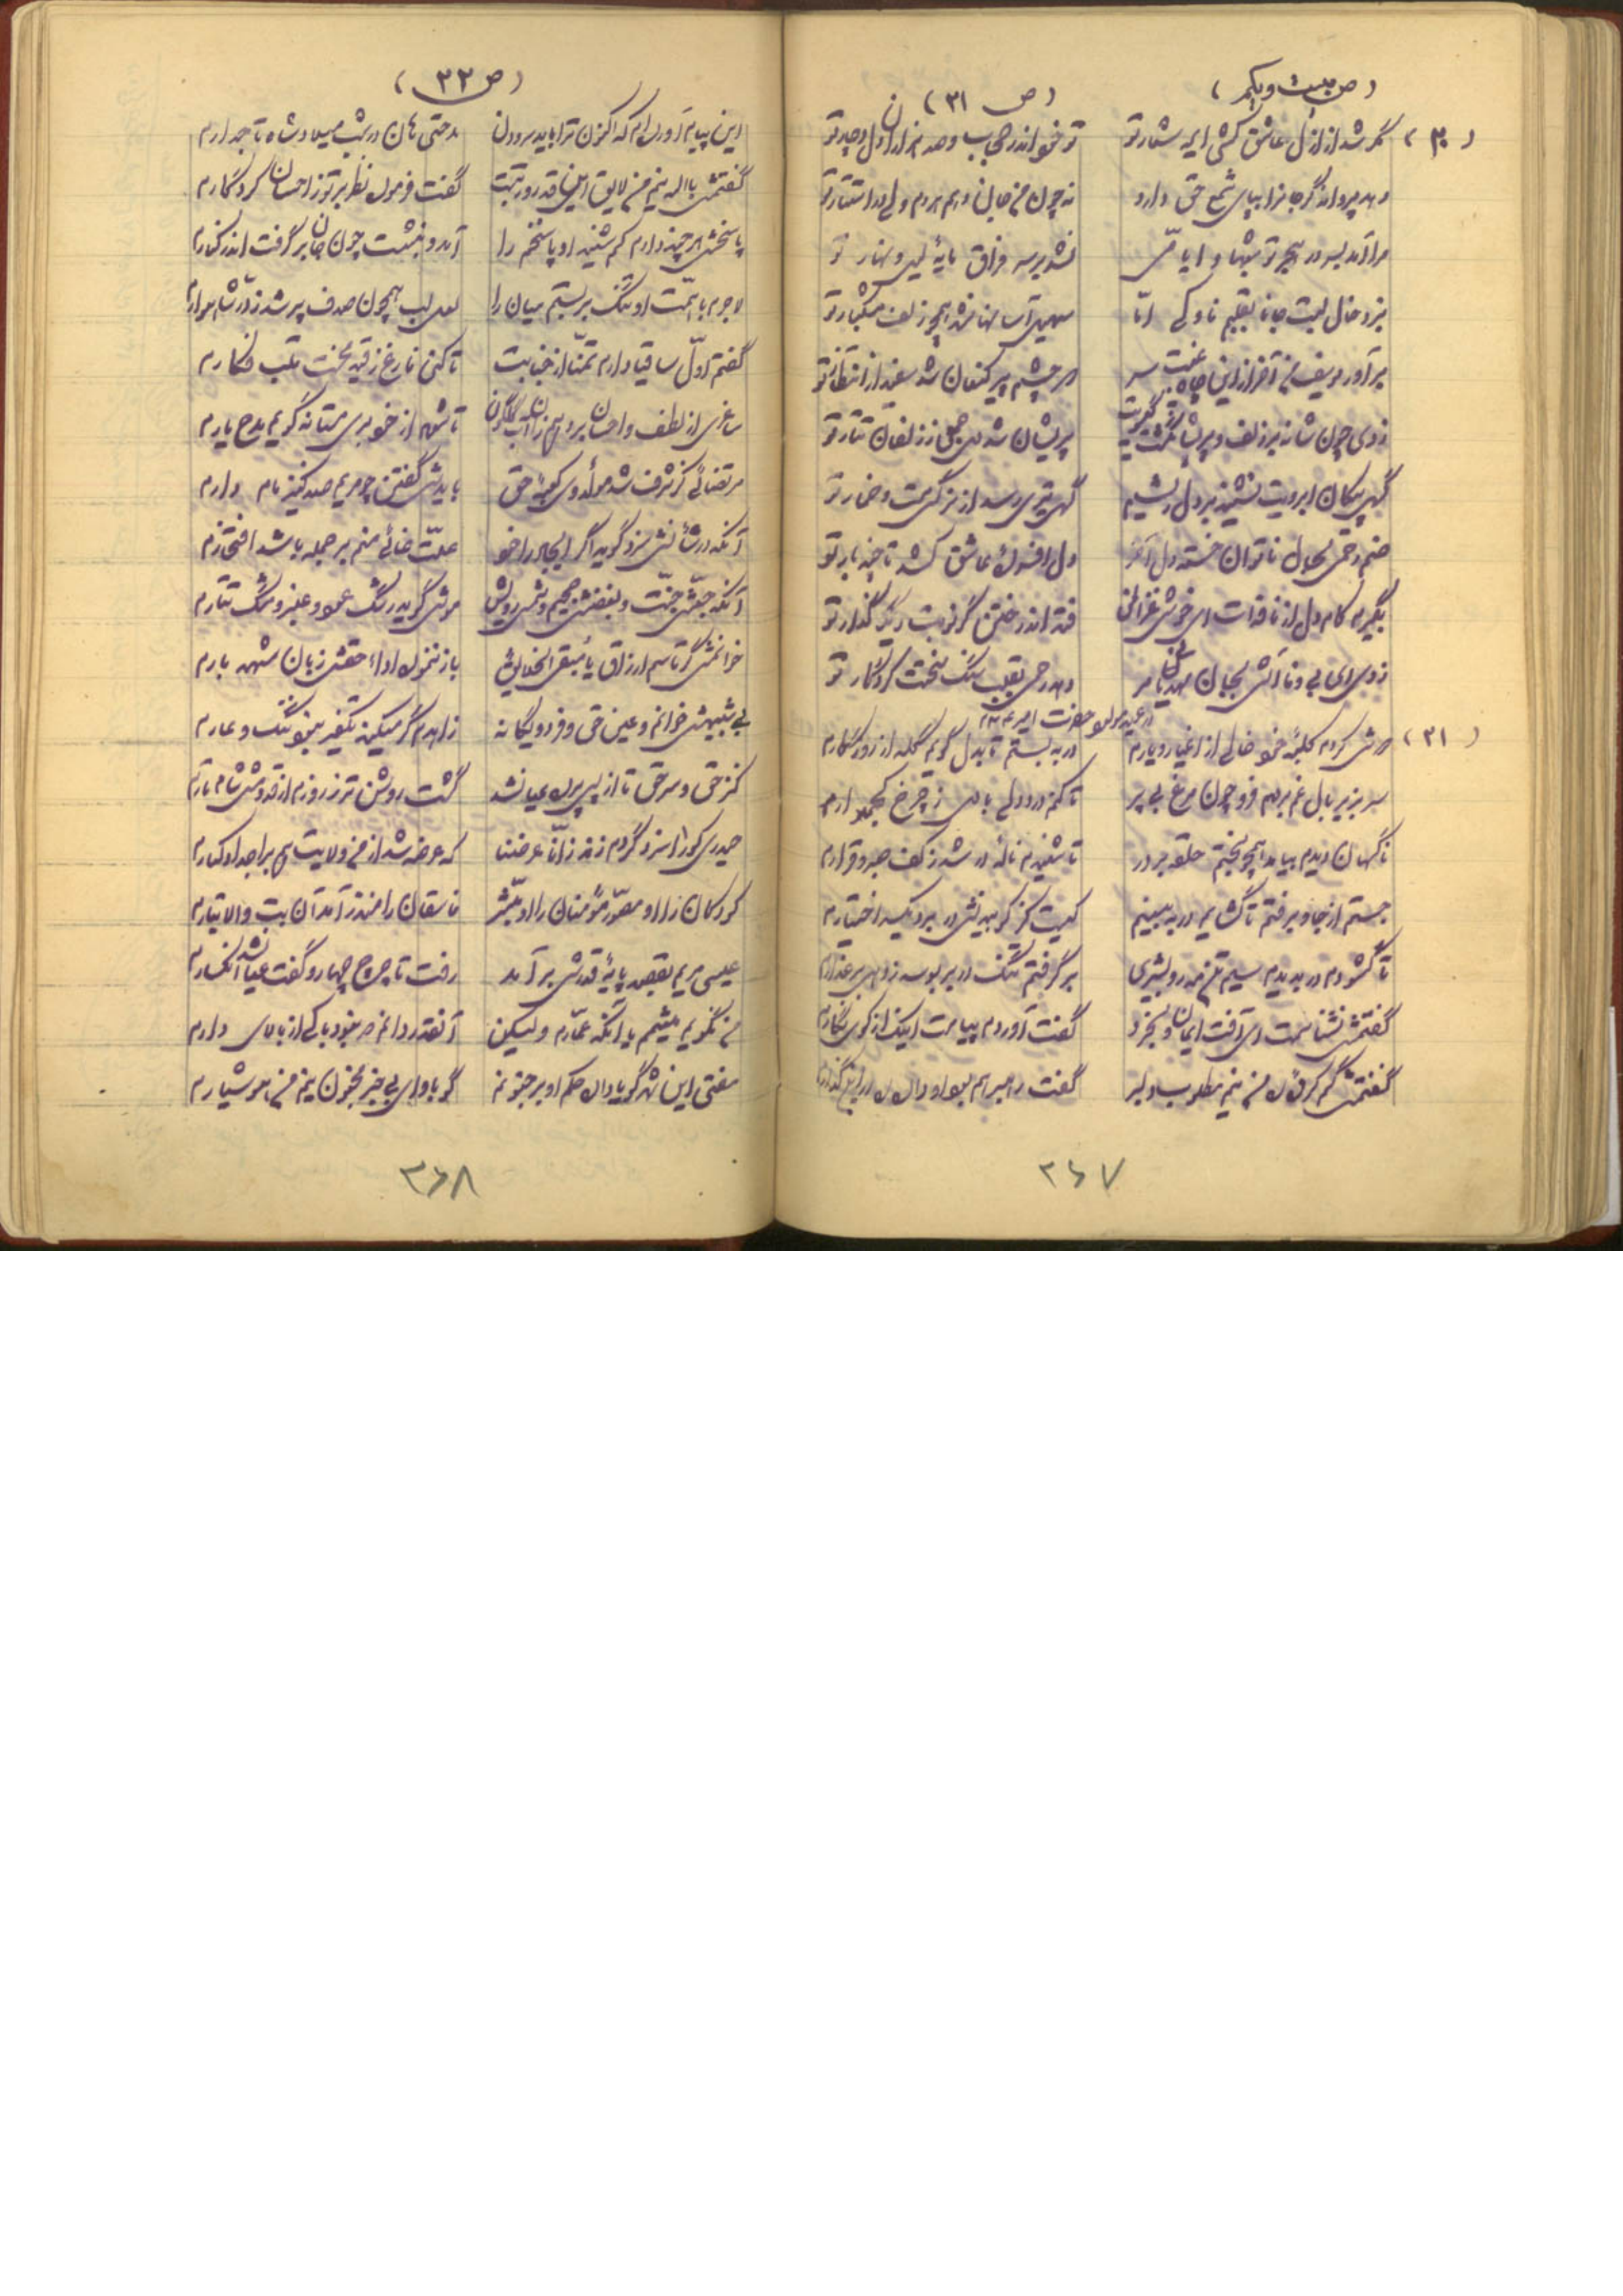 (ص بیست و یکم)
(ص ۳۱)
(۳۰) گر شد از ازل عاشق کشی ای شعار تو
تو خود اندر حجاب و صد هزاران دل دچار تو
دهد پروانه گر جانرا بپای شمع حق دارد
نه چون من جان دهم هردم ولی در انتظار تو
مرا آمد بسر در هجر تو شبها و ایامی
نشد بر سر فراق مایهٔ لیل و نهار تو
بزد خال لبت جانا بقلبم ناوکی اما
برآور یوسف من آخر از این چاه غبغب سر
که چشم پیر کنعان شد سفید از انتظار تو
زدی چون شانه بر زلف و پریشان گشت
پریشان شد دل جمعی ز زلفان تتار تو
گهی پیکان ابرویت نشیند بر دل ریشم
گهی تیری رسد از نرگس مست خمار تو
صنم رحمی بحال ناتوان خسته دل آخر
دل افسرده عاشق کشد تا چند بار تو
بگیرم کام دل از نافه‌ات ای خوش غزال
فتد اندر ختن گر نوبت دیگر گذار تو
زدی ای بی وفا آتش بجان
دهد رحمی بقلب سنگ سختت کردگار تو
در عید مولود حضرت امیر ع
(۳۱) دوش کردم کلبهٔ خود خالی از اغیار و یارم
در به بستم تا بدل گویم گله از روزگارم
سر بزیر بال غم بردم فرو چون مرغ بی پر
تا کنم درد دلی با دل ز چرخ کجمدارم
ناگهان دیدم بیامد همچو بختم حلقه بر در
تا شنیدم نالهٔ در شد ز کف صبر و قرارم
جستم از جا و برفتم تا گشایم در به بینم
کیست کز کوبیدنش در برد یکسر اختیارم
تا گشودم در بدیدم سیم تن مه رو بشیری
برگرفتم تنگ در بر بوسه زد بر عذارم
گفتمش نشناسمت ای آفت ایمان و بخرد
گفت آوردم پیامت اینک از کوی نگارم
گفتمش گم کرده‌ای من نیم مطلوب دلبر
گفت راهبر هم بود او
۳۶۷
(ص ۳۲)
این پیام آورده‌ام که اکنون ترا باید سرودن
مدحتی هان در شب میلاد شاه تاجدارم
گفتمش بالله نیم من لایق این قدر و رتبت
گفت فرموده نظر بر تو ز احسان کردگارم
پاسخش هر چند دادم کم شنید او پاسخم را
آمد و بنشست چون جان برگرفت اندر کنارم
لاجرم با همت او تنگ بربستم میان را
لعل لب همچون صدف پر شد ز در شاهوارم
گفتم اول ساقیا دارم تمنا از جنابت
تا کنی فارغ ز قید بخت قلب فکارم
ساغری از لطف و احسان بر دهم زان آب گلگون
تا شوم از خود بری مستانه گویم مدح یارم
مرتضائی کز شرف شد مولد وی کعبهٔ حق
بایدش گفتن چو مریم صد کنیز مام دارم
آنکه در شأنش سزد گوید اگر ایجاد را خود
علت غائی منم بر جمله باشد افتخارم
آنکه حبش جنت و بغضش جحیم و شمس رویش
موش گوید رنگ عود و عنبر و مشک تتارم
خوانمش گر قاسم ارزاق یا مبقی الخلایق
باز ننموده اداء حقش زبان شهد بارم
بی شبیهش خوانم و عین حق و فرد و یگانه
زاهدم گر میکند تکفیر نبود ننگ و عارم
کنز حق و سر حق تا از پس پرده عیان شد
گشت روشن تر ز روزم از قدومش شام تارم
حیدری کو را سزد گر دم زند ز انا عرضنا
که عرضه شد از من ولایت هم بر اجداد کبارم
کودکان را او مصور مؤمنان را او مبشر
فاسقان را منذر آمد آن بت والا تبارم
عیسی مریم بقصد پایهٔ قدرش برآمد
رفت تا چرخ چهارم گفت عیان شد انکسارم
من نگویم میثمم یا آنکه عمارم ولیکن
آنقدر دانم که نبود باکی از بالای دارم
مفتی این شهر گویا داده حکم او بر جنونم
گو باو ای بی خبر مجنون نیم من هوشیارم
۳۶۸